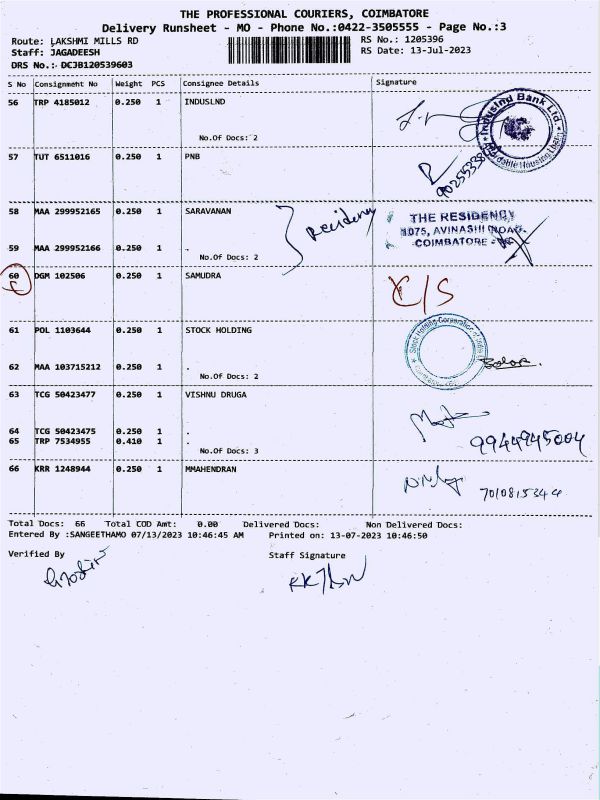 THE PROFESSIONAL COURIERS, COIMBATORE
Delivery Runsheet - MO - Phone No.:0422-3505555 - Page No.:3
Route: LAKSHMI MILLS RD
RS No.: 1205396
Staff: JAGADEESH
RS Date: 13-Jul-2023
DRS No.:- DCJB120539603
S No Consignment No Weight PCS Consignee Details Signature
56 TRP 4185012 0.250 1 INDUSLND
IndusInd Bank Ltd.
Affordable Housing Loan
No.Of Docs: 2
57 TUT 6511016 0.250 1 PNB
58 MAA 299952165 0.250 1 SARAVANAN
Residency
THE RESIDENCY
1075, AVINASHI ROAD,
COIMBATORE -
59 MAA 299952166 0.250 1 .
No.Of Docs: 2
60 DGM 102506 0.250 1 SAMUDRA
C/S
61 POL 1103644 0.250 1 STOCK HOLDING
Stock Holding Corporation of India
62 MAA 103715212 0.250 1 .
No.Of Docs: 2
63 TCG 50423477 0.250 1 VISHNU DRUGA
64 TCG 50423475 0.250 1 .
65 TRP 7534955 0.410 1 .
9944945004
No.Of Docs: 3
66 KRR 1248944 0.250 1 MMAHENDRAN
7010815344
Total Docs: 66 Total COD Amt: 0.00 Delivered Docs: Non Delivered Docs:
Entered By :SANGEETHAMO 07/13/2023 10:46:45 AM Printed on: 13-07-2023 10:46:50
Verified By Staff Signature